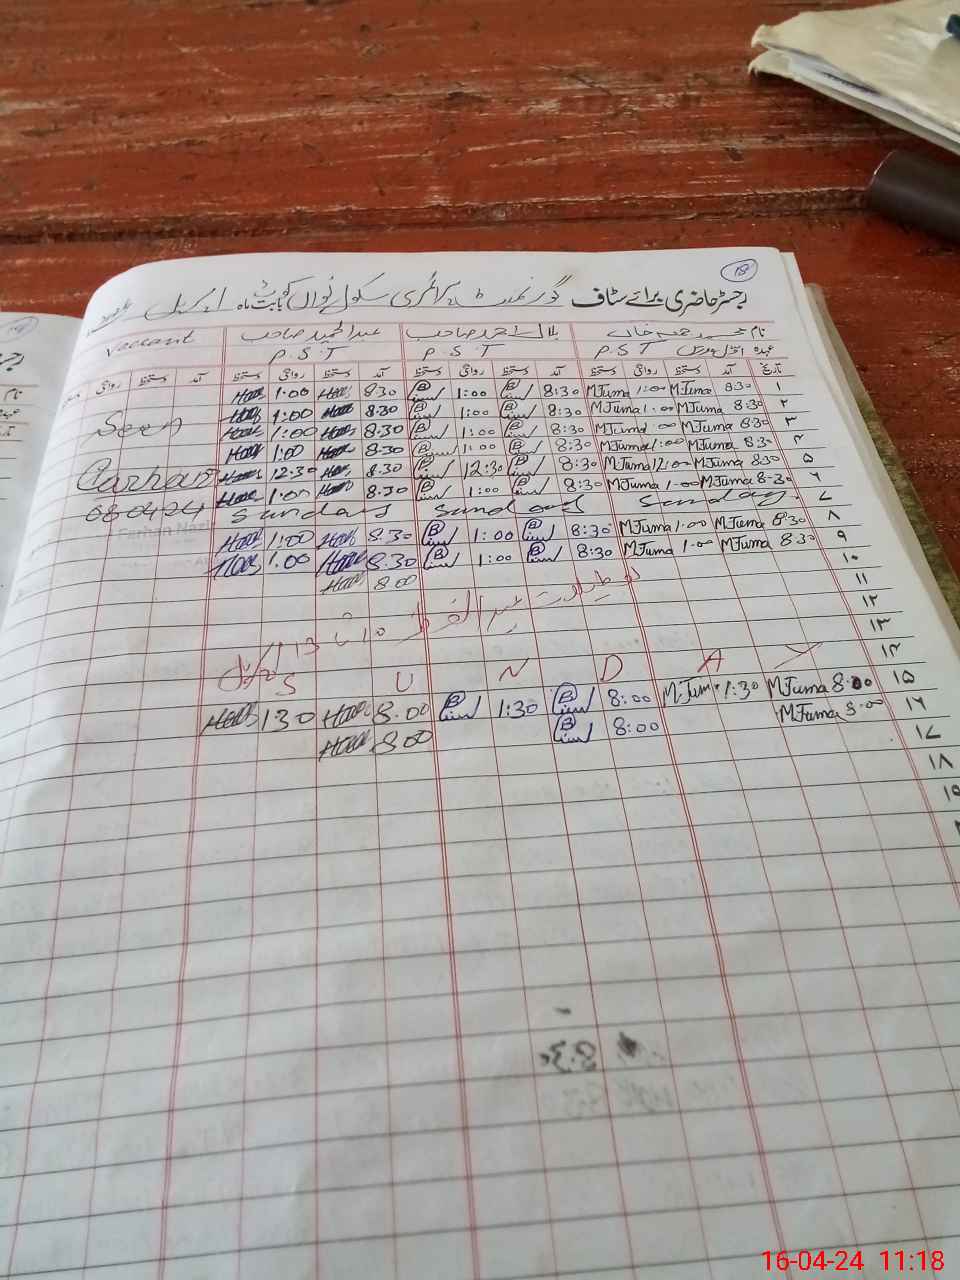 18
رجسٹر حاضری برائے سٹاف گورنمنٹ پرائمری سکول نواں کوٹ بابت ماہ اپریل
نام محمد جمعہ خان بلال احمد صاحب عبدالحمید صاحب Vaccant
عہدہ P.S.T P.S.T P.S.T
تاریخ آمد دستخط روانگی دستخط آمد دستخط روانگی دستخط آمد دستخط روانگی دستخط آمد دستخط روانگی
۱ 8:30 MJuma 1:00 MJuma 8:30 1:00 8:30 1:00
۲ 8:30 MJuma 1:00 MJuma 8:30 1:00 8:30 1:00 Seen
۳ 8:30 MJuma 1:00 MJuma 8:30 1:00 8:30 1:00
۴ 8:30 MJuma 1:00 MJuma 8:30 1:00 8:30 1:00
۵ 8:30 MJuma 12:00 MJuma 8:30 12:30 8:30 12:30 Farhan
۶ 8:30 MJuma 1:00 MJuma 8:30 1:00 8:30 1:00
۷ Sunday Sunday Sunday 080424
۸ 8:30 MJuma 1:00 MJuma 8:30 1:00 8:30 1:00
۹ 8:30 MJuma 1:00 MJuma 8:30 1:00 8:30 1:00
۱۰ 8:00
۱۱
۱۲ تعطیلات عید الفطر 10 تا 13 اپریل
۱۳
۱۴ S U N D A Y
۱۵ 8:00 MJuma 1:30 MJuma 8:00 1:30 8:00 1:30
۱۶ 8:00 MJuma 8:00 8:00
۱۷
۱۸
۱۹
8:30
16-04-24 11:18